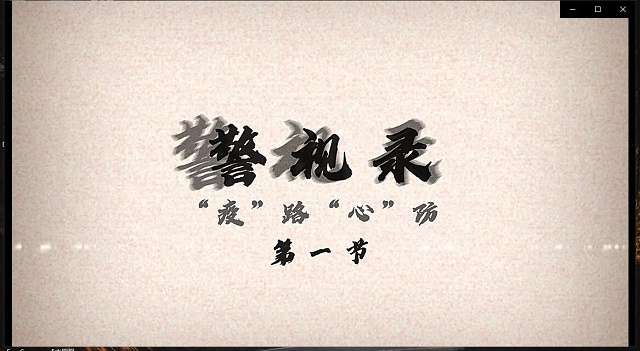 警视录
“疫”路“心”防
第一节